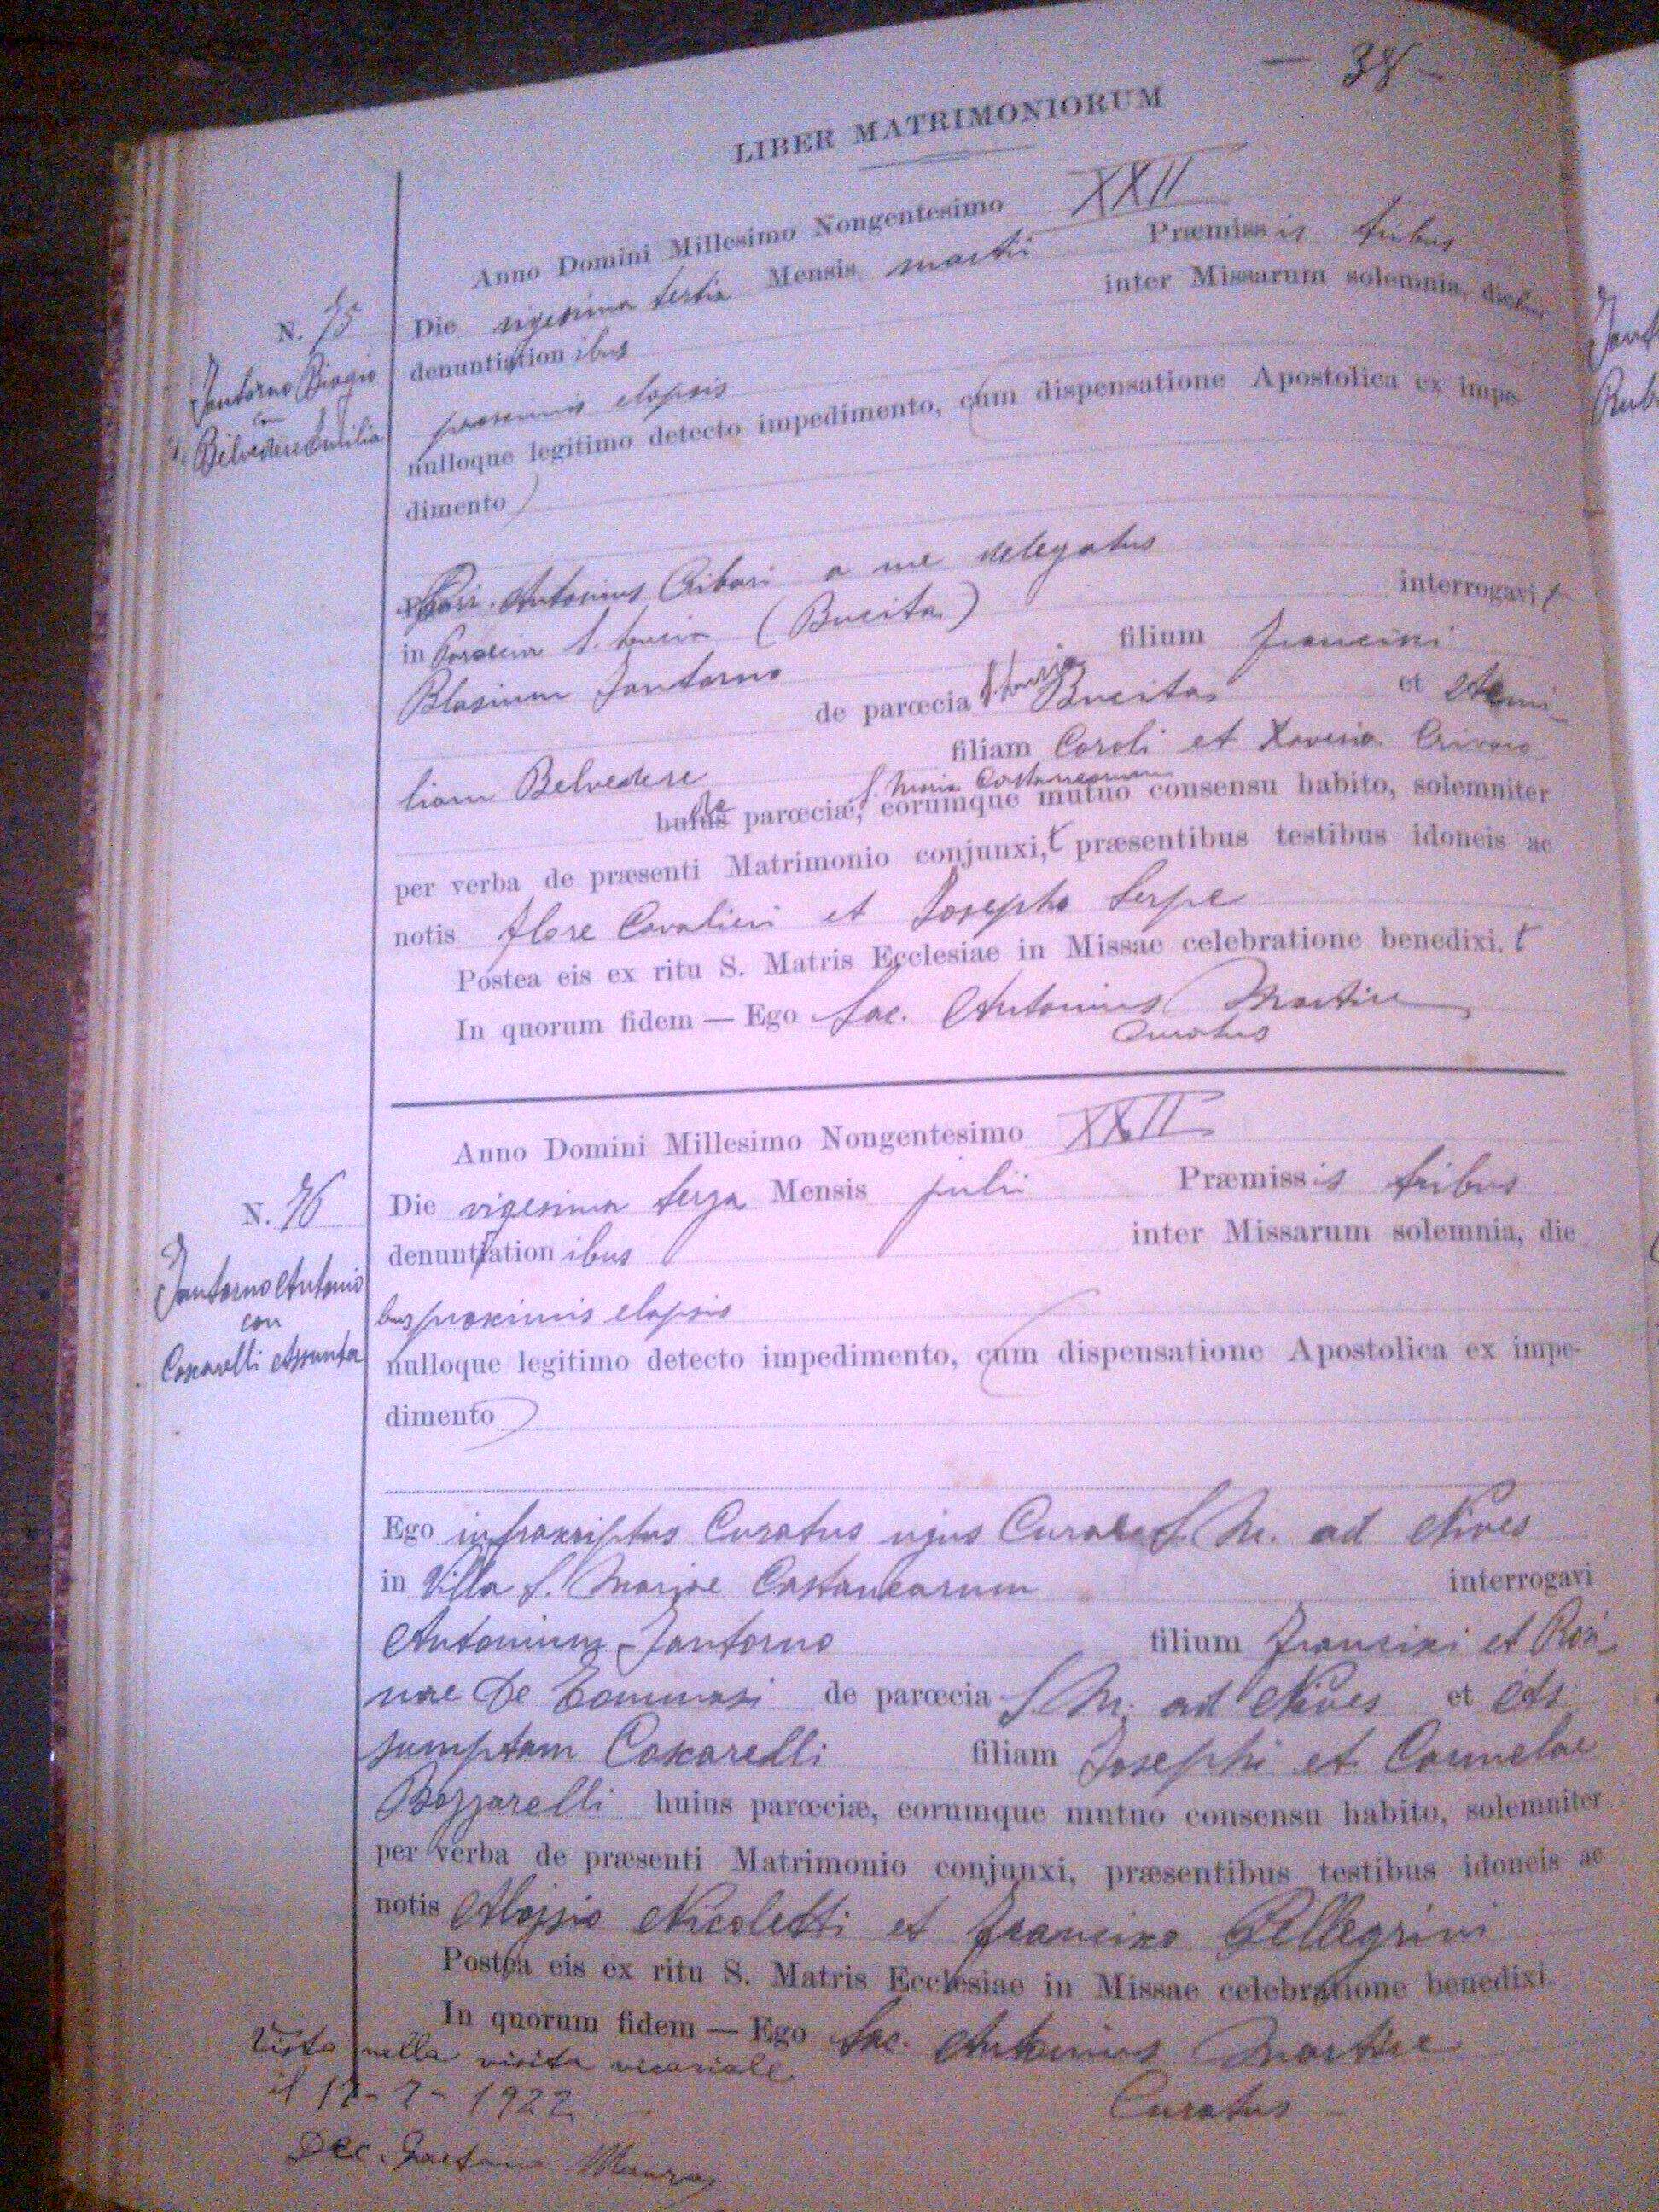 — 38 —
LIBER MATRIMONIORUM
Anno Domini Millesimo Nongentesimo XXII
N. 75
Die vigesima tertia Mensis martii Præmissis tribus
denuntiationibus inter Missarum solemnia, die
Jantorno Biagio
con
Belvedere Emilia
proximis elapsis
nulloque legitimo detecto impedimento, cum dispensatione Apostolica ex impe-
dimento
Antonius Ribari a me delegatus
in Paroecia S. Lucia (Bucita) interrogavit
Blasium Jantorno filium Francisci
de parœcia S. Lucia Bucita et Aemi-
liam Belvedere filiam Caroli et Xaveria Crivaro
S. Maria Castanearum
huius de parœciæ, eorumque mutuo consensu habito, solemniter
per verba de præsenti Matrimonio conjunxi,t præsentibus testibus idoneis ac
notis Flore Cavalieri et Josepho Serpe
Postea eis ex ritu S. Matris Ecclesiae in Missae celebratione benedixi.t
In quorum fidem — Ego Sac. Antonius Martire
Curatus
Anno Domini Millesimo Nongentesimo XXII
N. 76
Die vigesima terza Mensis julii Præmissis tribus
denuntiationibus inter Missarum solemnia, die
Jantorno Antonio
con
Coscarelli Assunta
bus proximis elapsis
nulloque legitimo detecto impedimento, cum dispensatione Apostolica ex impe-
dimento
Ego infrascriptus Curatus ujus Curae S. M. ad Nives
in Villa S. Mariae Castanearum interrogavi
Antonium Jantorno filium Francisci et Rosi-
nae De Tommasi de parœcia S. M. ad Nives et As
sumptam Coscarelli filiam Josephi et Carmelae
Bozzarelli huius parœciæ, eorumque mutuo consensu habito, solemniter
per verba de præsenti Matrimonio conjunxi, præsentibus testibus idoneis ac
notis Alojsio Nicoletti et Francisco Pellegrini
Postea eis ex ritu S. Matris Ecclesiae in Missae celebratione benedixi.
In quorum fidem — Ego Sac. Antonius Martire
Curatus
Visto nella visita vicariale
il 17-7-1922
Dec. Gaetano Mauro